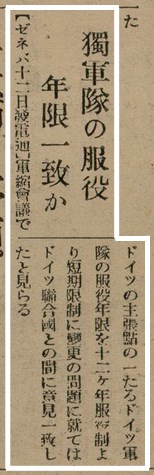 た
獨軍隊の服役
年限一致か
【ゼネバ十二日發電通】軍縮會議で
ドイツの主張點の一たるドイツ軍
隊の服役年限を十二ケ年服役制よ
り短期限制に變更の問題に就ては
ドイツ聯合國との間に意見一致し
たと見らる